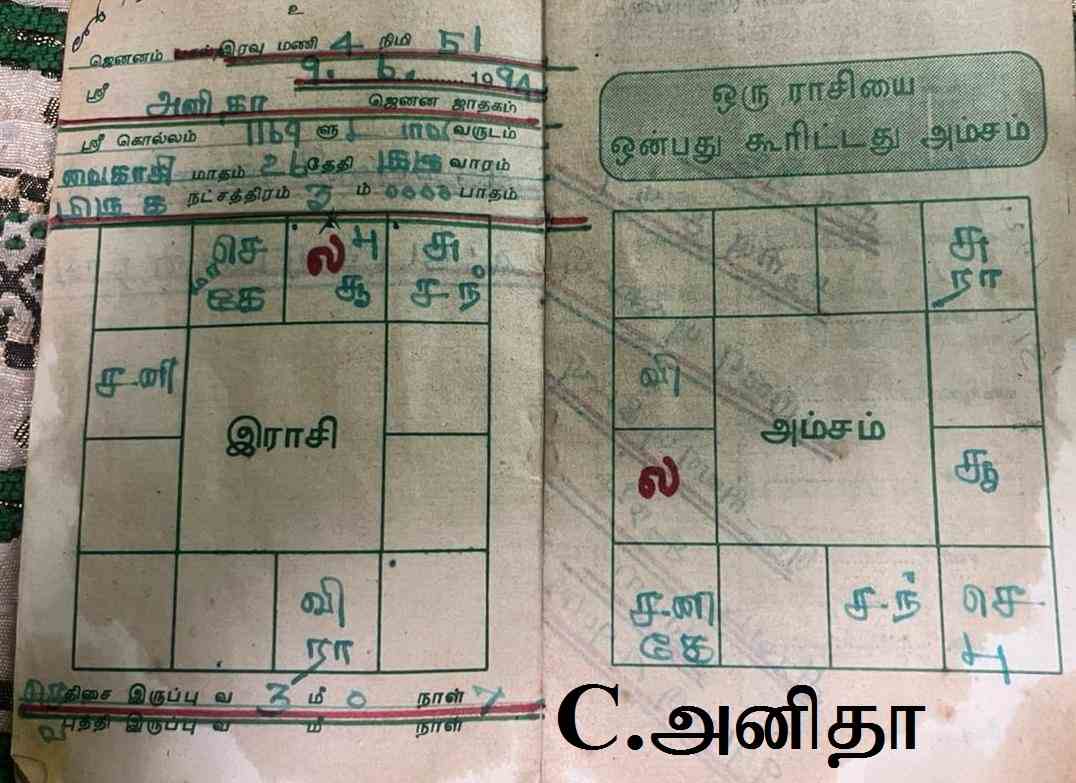 உ
ஜெனனம் இரவு மணி 4 நிமி 51
9. 6. 1994
ஸ்ரீ அனிதா ஜெனன ஜாதகம்
ஸ்ரீ கொல்லம் 1169 ளு வருடம்
வைகாசி மாதம் 26 தேதி வாரம்
நட்சத்திரம் 3 ம் பாதம்
செ
கே
ல பு
சூ
சு
சந்
சனி
இராசி
வி
ரா
திசை இருப்பு வ 3 மீ 0 நாள் 7
புத்தி இருப்பு வ மீ நாள்
ஒரு ராசியை
ஒன்பது கூரிட்டது அம்சம்
சு
ரா
வி
அம்சம்
ல
சூ
சனி
கே
சந்
செ
பு
C.அனிதா